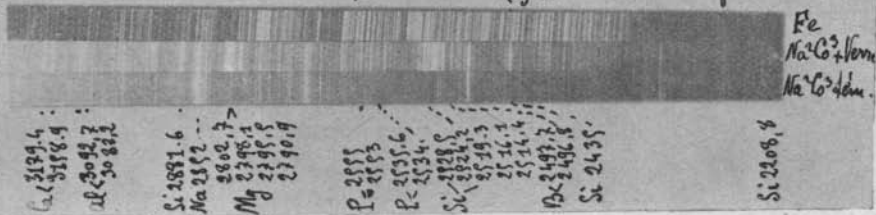 Fe
Na²Co³+Verre
Na²Co³+lém.
Ca < 3179.4
3158.9
Al < 3092,7
3082,2
Si 2881.6
Na 2852
2802,7
Mg 2798,1
2795,5
2790,9
P = 2555
2553
P < 2535.6
2534.
Si 2528,5
2524,2
2519.3
2516.1
2514.4
B < 2497.7
2496,8
Si 2435.
Si 2208,8